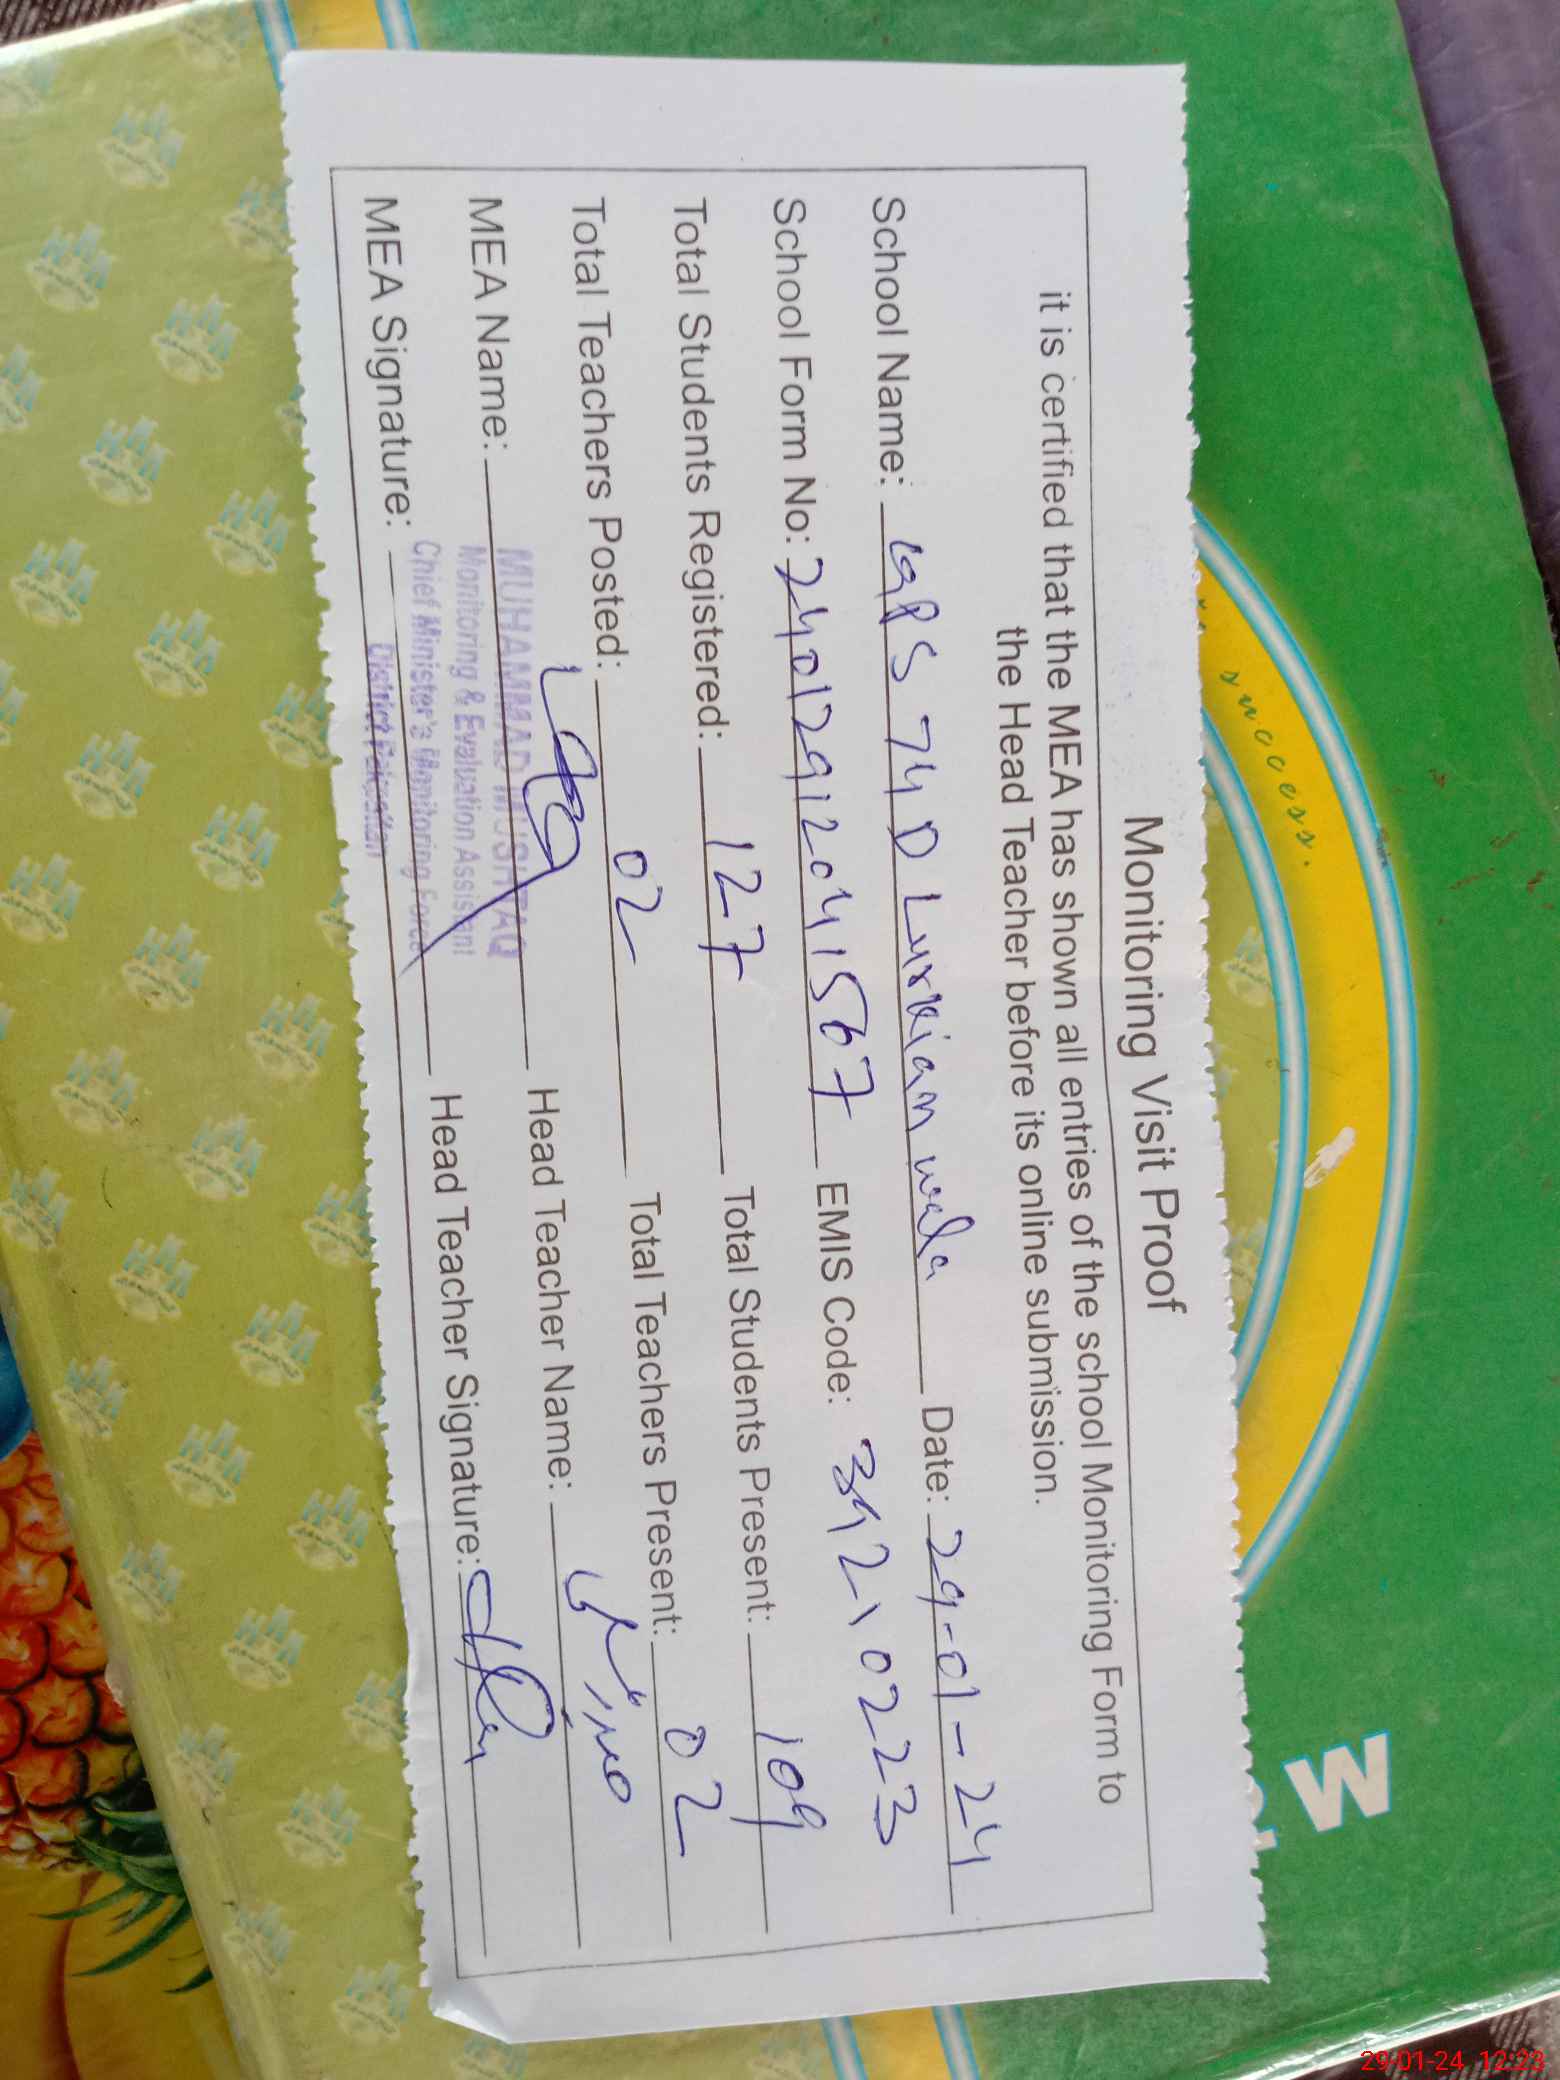 Monitoring Visit Proof
it is certified that the MEA has shown all entries of the school Monitoring Form to
the Head Teacher before its online submission.
School Name: GPS 74 D Date: 29-01-24
School Form No: 24012912041567 EMIS Code: 39210223
Total Students Registered: 127 Total Students Present: 109
Total Teachers Posted: 02 Total Teachers Present: 02
MEA Name: MUHAMMAD MUSHTAQ Head Teacher Name:
Monitoring & Evaluation Assistant
Chief Minister's Monitoring Force
District Pakpattan
MEA Signature: Head Teacher Signature:
success.
W
29-01-24 12:23